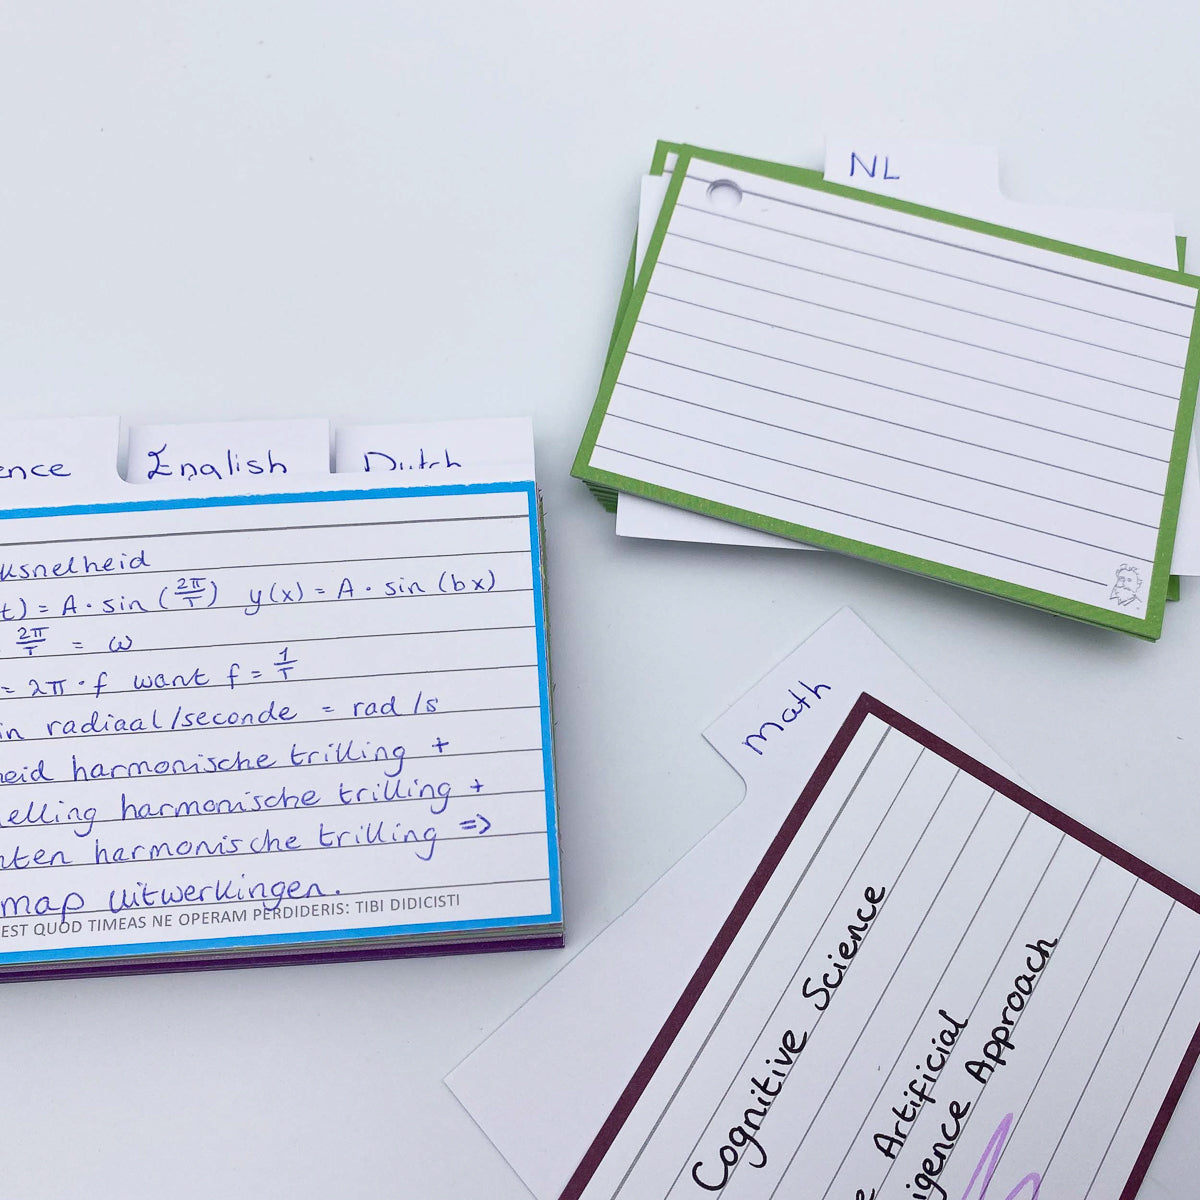 NL
English
Dutch
t) = A · sin (2π/T) y(x) = A · sin (bx)
2π/T = ω
= 2π · f want f = 1/T
in radiaal/seconde = rad/s
harmonische trilling +
harmonische trilling +
harmonische trilling =>
map uitwerkingen.
EST QUOD TIMEAS NE OPERAM PERDIDERIS: TIBI DIDICISTI
Math
Cognitive Science
Artificial
Approach